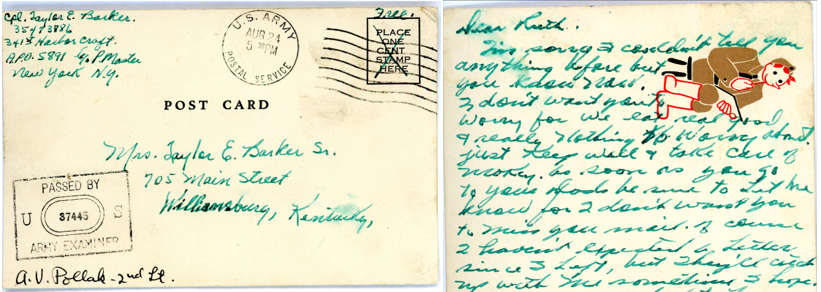 Cpl. Taylor E. Barker.
35473886
341st Harbor Craft.
A.P.O. 5891 c/o P. Master
New York N.Y.
U.S. ARMY
AUG 24
5 PM
POSTAL SERVICE
Free.
PLACE
ONE
CENT
STAMP
HERE
POST CARD
Mrs. Taylor E. Barker Sr.
705 Main Street
Williamsburg, Kentucky,
PASSED BY
U 37445 S
ARMY EXAMINER
A.V. Pollak - 2nd Lt.
Dear Ruth.
I'm sorry I couldn't tell you
anything before but
you know now.
I don't want you to
worry for we eat real good
& really nothing to worry about.
just keep well & take care of
money. as soon as you go
to your dads be sure to let me
know for I don't want you
to miss you mail. of course
I haven't expected a letter
since I left, but they'll catch
up with me sometime I hope.